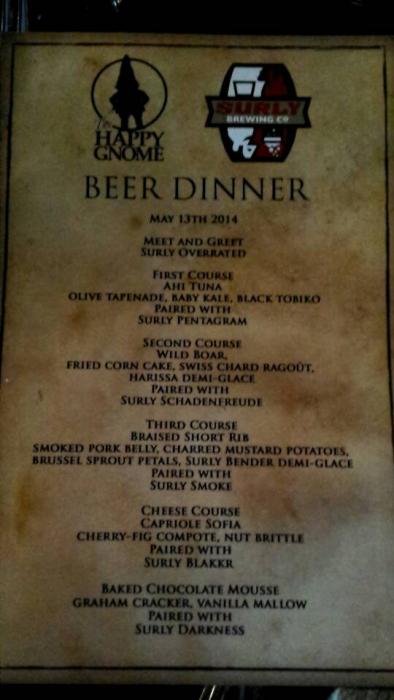 The
HAPPY
GNOME
SURLY
BREWING CO
BEER DINNER
MAY 13TH 2014
MEET AND GREET
SURLY OVERRATED
FIRST COURSE
AHI TUNA
OLIVE TAPENADE, BABY KALE, BLACK TOBIKO
PAIRED WITH
SURLY PENTAGRAM
SECOND COURSE
WILD BOAR,
FRIED CORN CAKE, SWISS CHARD RAGOÛT,
HARISSA DEMI-GLACE
PAIRED WITH
SURLY SCHADENFREUDE
THIRD COURSE
BRAISED SHORT RIB
SMOKED PORK BELLY, CHARRED MUSTARD POTATOES,
BRUSSEL SPROUT PETALS, SURLY BENDER DEMI-GLACE
PAIRED WITH
SURLY SMOKE
CHEESE COURSE
CAPRIOLE SOFIA
CHERRY-FIG COMPOTE, NUT BRITTLE
PAIRED WITH
SURLY BLAKKR
BAKED CHOCOLATE MOUSSE
GRAHAM CRACKER, VANILLA MALLOW
PAIRED WITH
SURLY DARKNESS